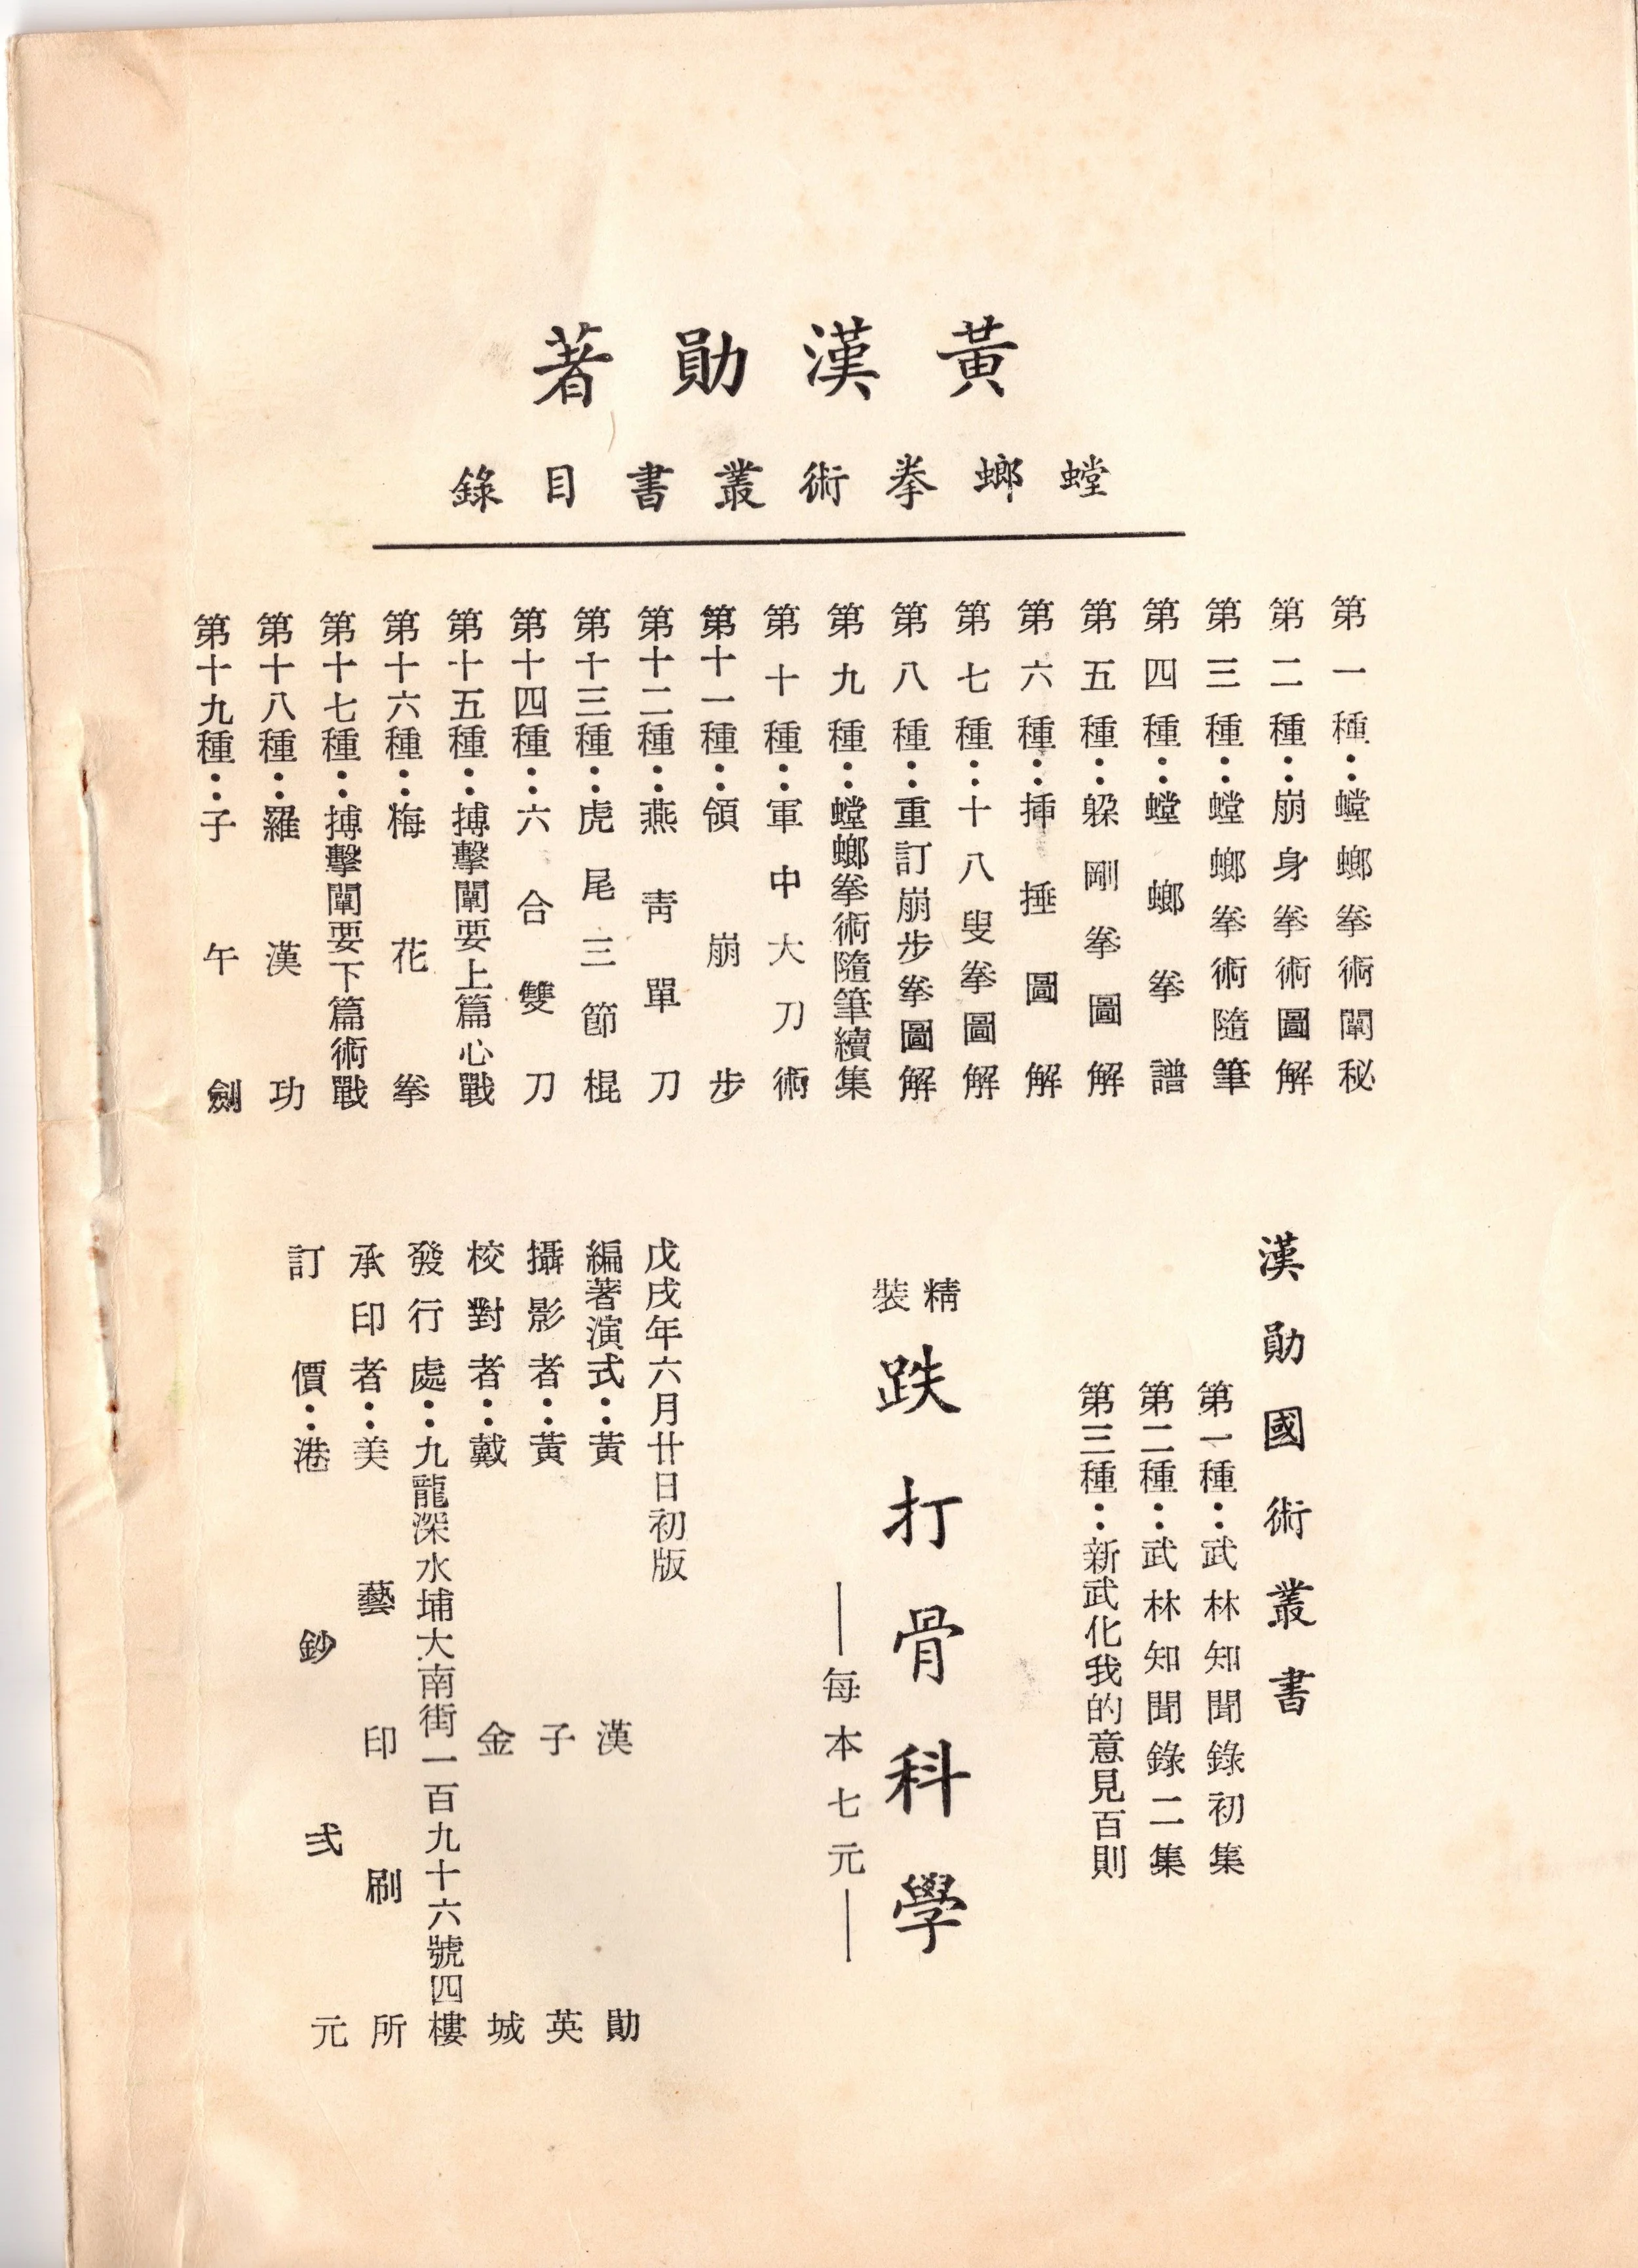 黃漢勛著
螳螂拳術叢書目錄
第一種：螳螂拳術闡秘
第二種：崩身拳術圖解
第三種：螳螂拳術隨筆
第四種：螳螂拳譜
第五種：躲剛拳圖解
第六種：插捶圖解
第七種：十八叟拳圖解
第八種：重訂崩步拳圖解
第九種：螳螂拳術隨筆續集
第十種：軍中大刀術
第十一種：領崩步
第十二種：燕靑單刀
第十三種：虎尾三節棍
第十四種：六合雙刀
第十五種：搏擊闡要上篇心戰
第十六種：梅花拳
第十七種：搏擊闡要下篇術戰
第十八種：羅漢功
第十九種：子午劍
漢勛國術叢書
第一種：武林知聞錄初集
第二種：武林知聞錄二集
第三種：新武化我的意見百則
精裝
跌打骨科學
—每本七元—
戊戌年六月廿日初版
編著演式：黃漢勛
攝影者：黃子英
校對者：戴金城
發行處：九龍深水埔大南街一百九十六號四樓
承印者：美藝印刷所
訂價：港鈔弍元